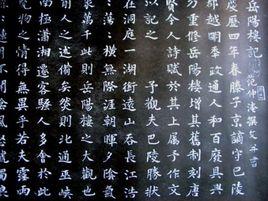 岳陽樓記 范仲淹撰文
慶曆四年春滕子京謫守巴陵
郡越明季政通人和百廢具興
乃重修岳陽樓增其舊制刻唐
賢今人詩賦於其上屬予作文
以記之 予觀夫巴陵勝狀
在洞庭一湖銜遠山吞長江浩
〻湯〻橫無際涯朝暉夕陰氣
象萬千此則岳陽樓之大觀也
前人之述備矣然則北通巫峽
南極瀟湘遷客騷人多會於此
覽物之情得無異乎若夫霪雨
月不開陰風怒號濁浪